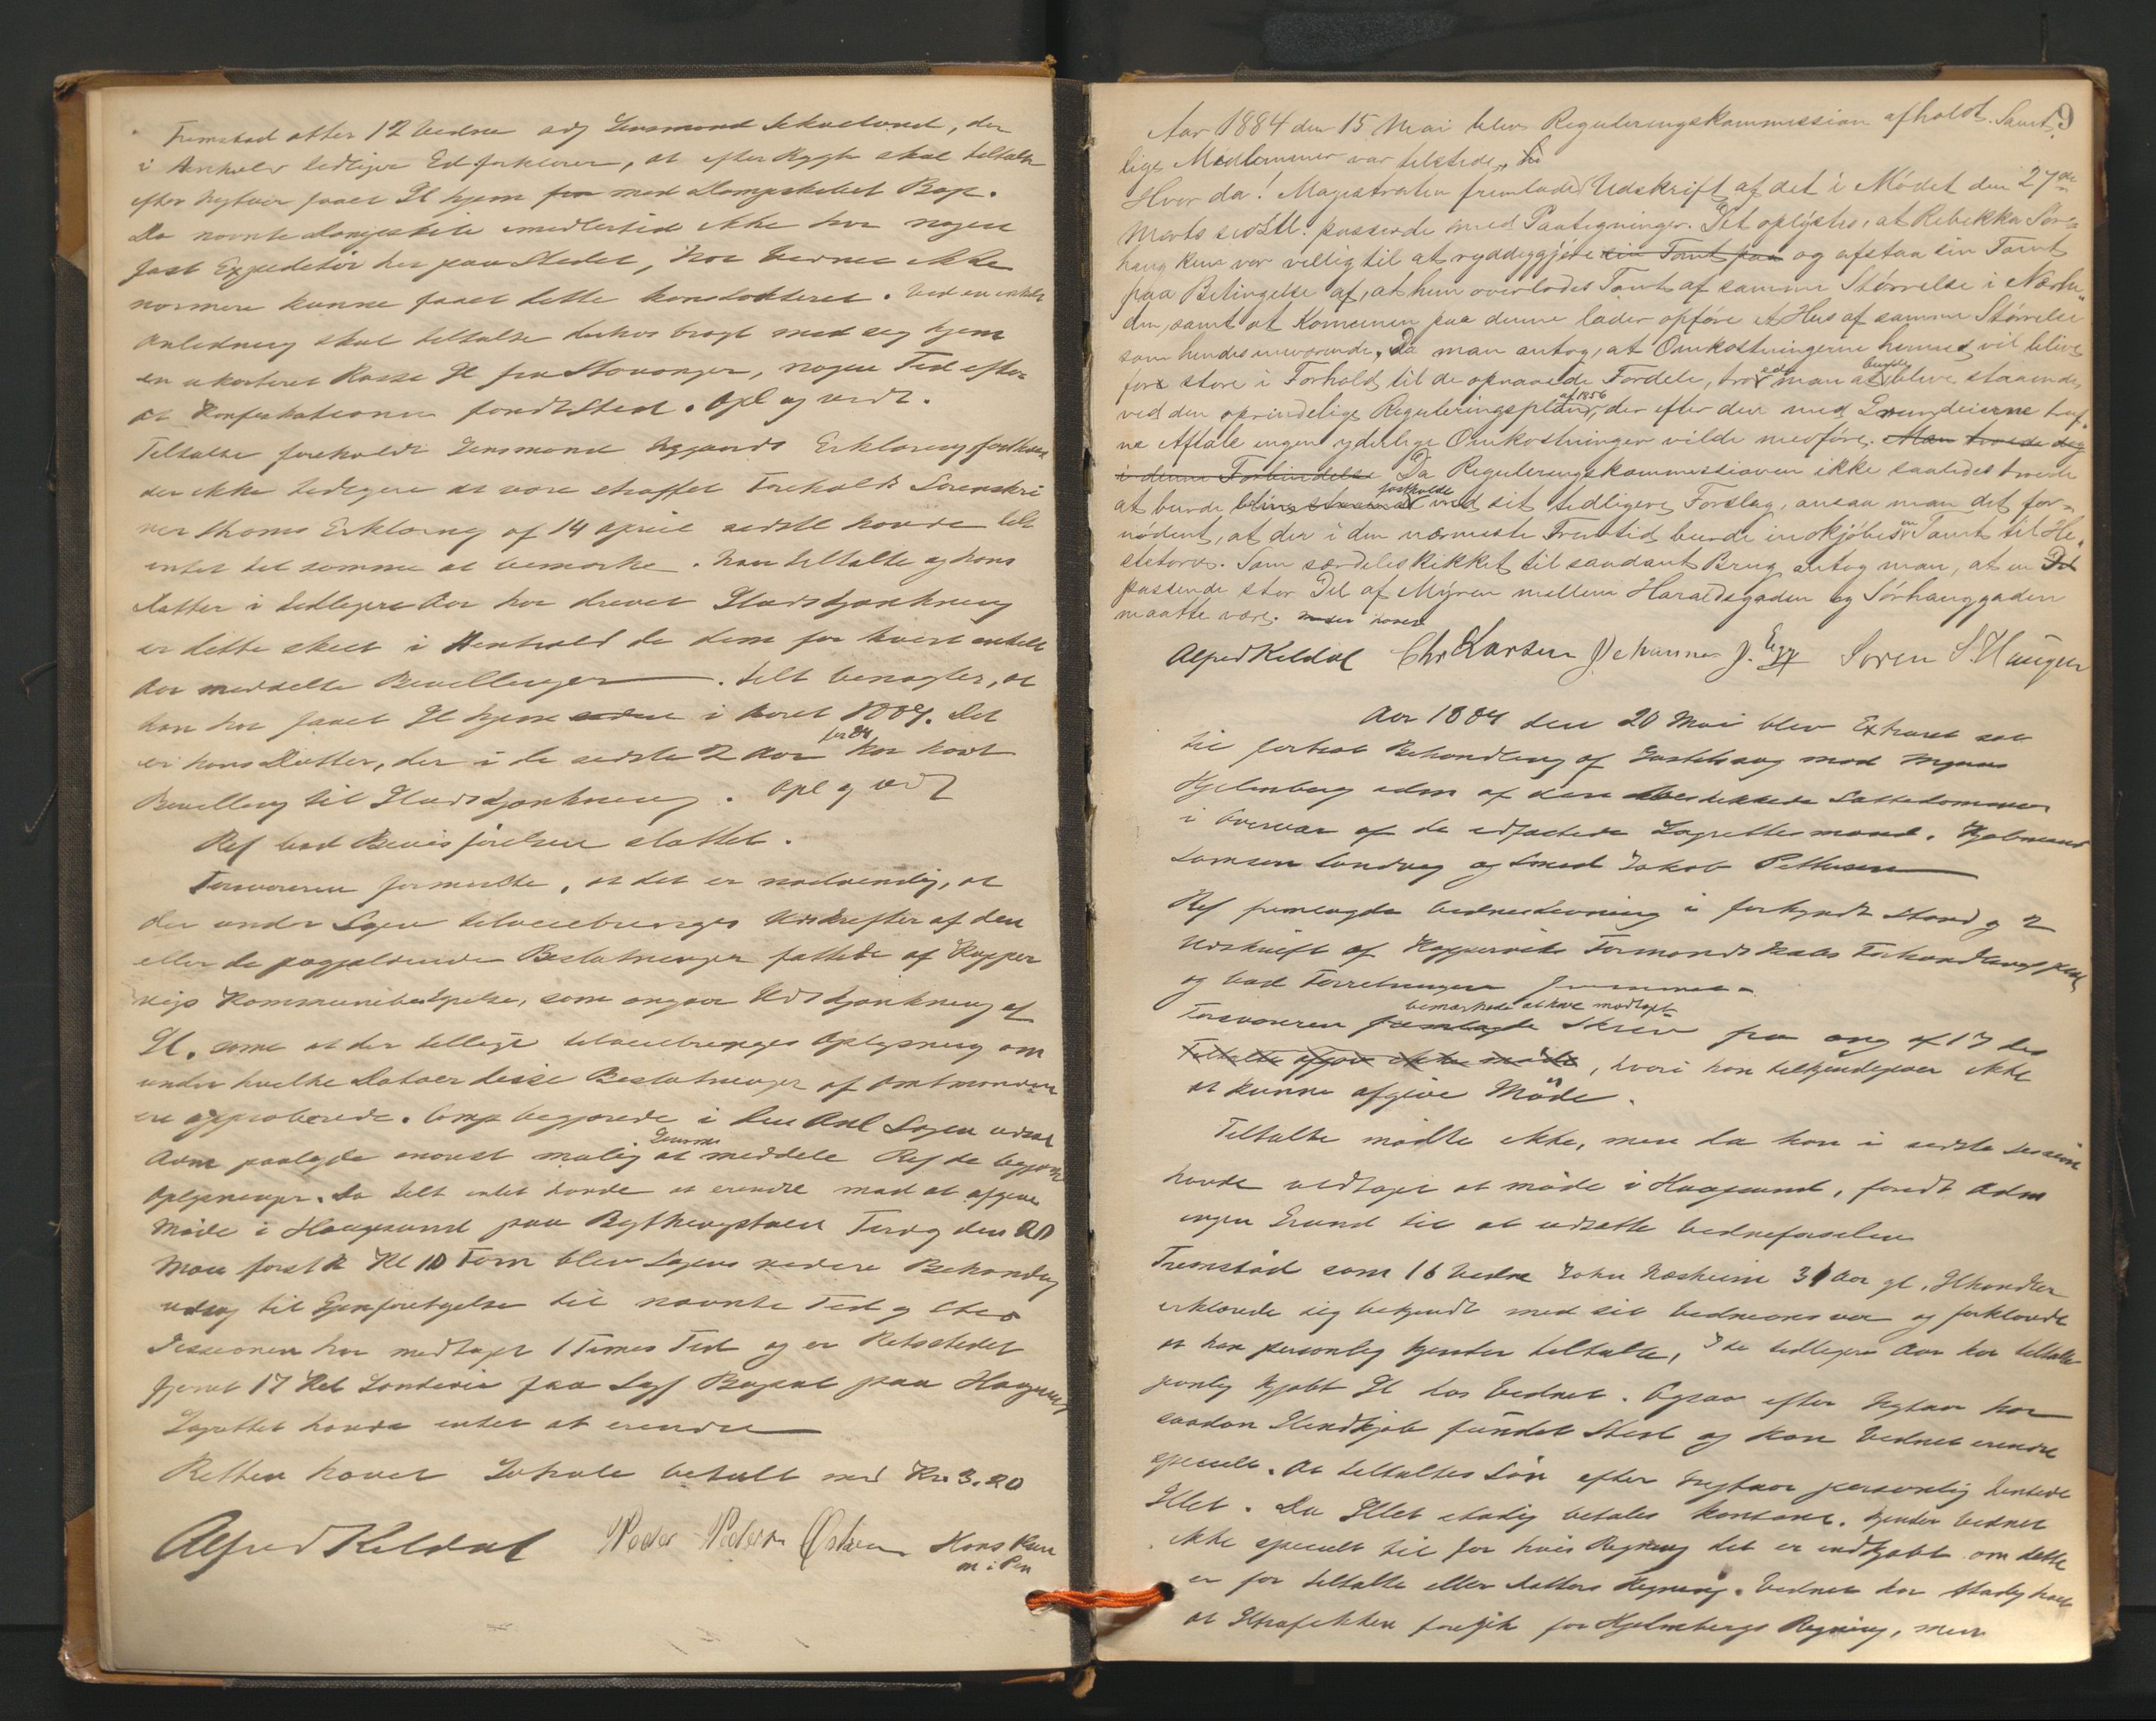 Fremstod atter 12 Vedne adj Lensmand Schoelund, der
i Henhold tidligere Ed forklarer, at efter Rygte skal tiltalte
efter Nytaar faaet Øl hjem fra med Dampskibet Bap.
Da nævnte Dampskib imedlertid ikke har nogen
fast Expeditør her paa Stedet, har Vidnet ikke
nærmere kunne faaet dette konstateret. Ved en enkelt
Anledning skal tiltalte derhos bragt med sig hjem
en ukorteret Kasse Øl fra Stavanger, nogen Tid efter
at Konfiskationen fandt Sted. Opl og vedt.
Tiltalte foreholdt Lensmand Erklæring fastholdt
der ikke tidligere at være straffet Foreholdt Sorenskri
ver Thoms Erklæring af 14 April sidstl havde tilt
intet til samme at bemærke. Naar tiltalte og hans
Datter i tidligere Aar har drevet Øludskjænkning
er dette skeet i Henhold de dem for hvert enkelt
Aar meddelte Bevillinger. tilt benægter, at
han har faaet Øl hjem sidste i Aaret 1884. Det
er hans Datter, der i de sidste 2 Aar før 84 har havt
Bevilling til Øludskjænkning. Opl og vedt
Ref bad Bevisførelsen sluttet.
Forsvareren formente, at det er nødvendig, at
der under Sagen tilveiebringes Udskrifter af den
eller de paagjældende Beslutninger fattede af Kopper
vigs Kommunebestyrelse, som angaar Udskjænkning af
Øl, samt at der tillige tilveiebringes Oplysning om
under hvilke Datoer disse Beslutninger af Amtmanden
ere approberede. Comp begjærede i den Anl Sagen udsat
Adm paalagde snarest mulig Lensmd at meddele Ref de begjærte
Oplysninger. Da tilt intet havde at erindre mod at afgive
Møde i Haugesund paa Bythingstuen Tirsdag den 20
Mai førstk Kl 10 Form blev Sagens videre Behandling
udsat til Gjenforetagelse til nævnte Tid og Sted
Sessionen har medtaget 1 Times Tid og er Retsstedet
fjernet 17 Kil Landevei fra Sagf Bopæl paa Haugesund
Lagrettet havde intet at erindre
Retten hævet Lokale betalt med Kr. 3.20
Alfred Keldal Peder Pedersen Østrem Hans Rasm
m: Pen
9
Aar 1884 den 15 Mai blev Reguleringskommission afholdt. Samt-
lige Medlemmer var tilstede,
Hvor da! Magistraten fremlagde Udskrift af det i Mødet den 27de
Marts sidstl. passerede med Paategninger. Det oplystes, at Rebekka Sør-
haug kun var villig til at ryddiggjøre sin Tomt paa og afstaa sin Tomt
paa Betingelse af, at hun overlodes Tomt af samme Størrelse i Nærhe-
den, samt at Komunen paa denne lader opføre et Hus af samme Størrelse
som hendes nuværende. Da man antog, at Omkostningerne herved vil blive
for store i Forhold til de opnaaede Fordele, troede man at burde blive staaende
ved den oprindelige Reguleringsplan af 1856, der efter den med Grundeierne truf-
ne Aftale ingen yderlige Omkostninger vilde medføre. Man troede dog
i denne Forbindelse Da Reguleringskommissionen ikke saaledes troede
at burde blive staaende fastholde ved sit tidligere Forslag, ansaa man det for-
nødent, at der i den nærmeste Fremtid burde indkjøbes en Tomt til He-
stetorv. Som særdeles skikket til saadant Brug antog man, at en Del
passende stor Del af Myren mellem Haraldsgaden og Sørhauggaden
maatte være.
Alfred Keldal Chr Karsten Johannes J. Egge Søren S. Haugen
Aar 1884 den 20 Mai blev Extraret sat
til fortsat Behandling af Justitssag mod Mgnus
Hjelmberg adm af den beskikkede Sættedommer
i Overvær af de edfæstede Lagrettemænd. Kjøbmand
Samson Sundvag og Smed Jakob Pettersen
Ref fremlagde Vidnestevning i forkyndt Stand og 2
Udskrift af Koppervik Formandskabs Forhandlingsprot
og bad Forretningen fremmet.
Forsvareren fremlagde bemærkede at have modtaget Skriv fra ang af 17 ds
Tiltalte afgav ikke møde, hvori han tilkjendegiver ikke
at kunne afgive Møde.
Tiltalte mødte ikke, men da han i sidste Session
havde vedtaget at møde i Haugesund, fandt Adm
ingen Grund til at udsætte Vidneførselen
Fremstod som 16 Vedne John Næsheim 31 Aar gl. Ølhandler
erklærede sig bekjendt med sit Vidneansvar og forklarede
at han personlig kjender tiltalte, I de tidligere Aar har tiltalte
jevnlig kjøbt Øl hos Vednet. Ogsaa efter Nytaar har
saadan Ølindkjøb fundet Sted og kan Vednet erindre
specielt. At tiltaltes Søn efter Nytaar personlig hentede
Øllet. Da Øllet stadig betales kontant, kjender Vednet
ikke specielt til for hvis Regning det er indkjøbt om dette
er for tiltalte eller Datters Regning. Vednet har stadig troet
at Øltrafikken foregik for Hjelmbergs Regning, men